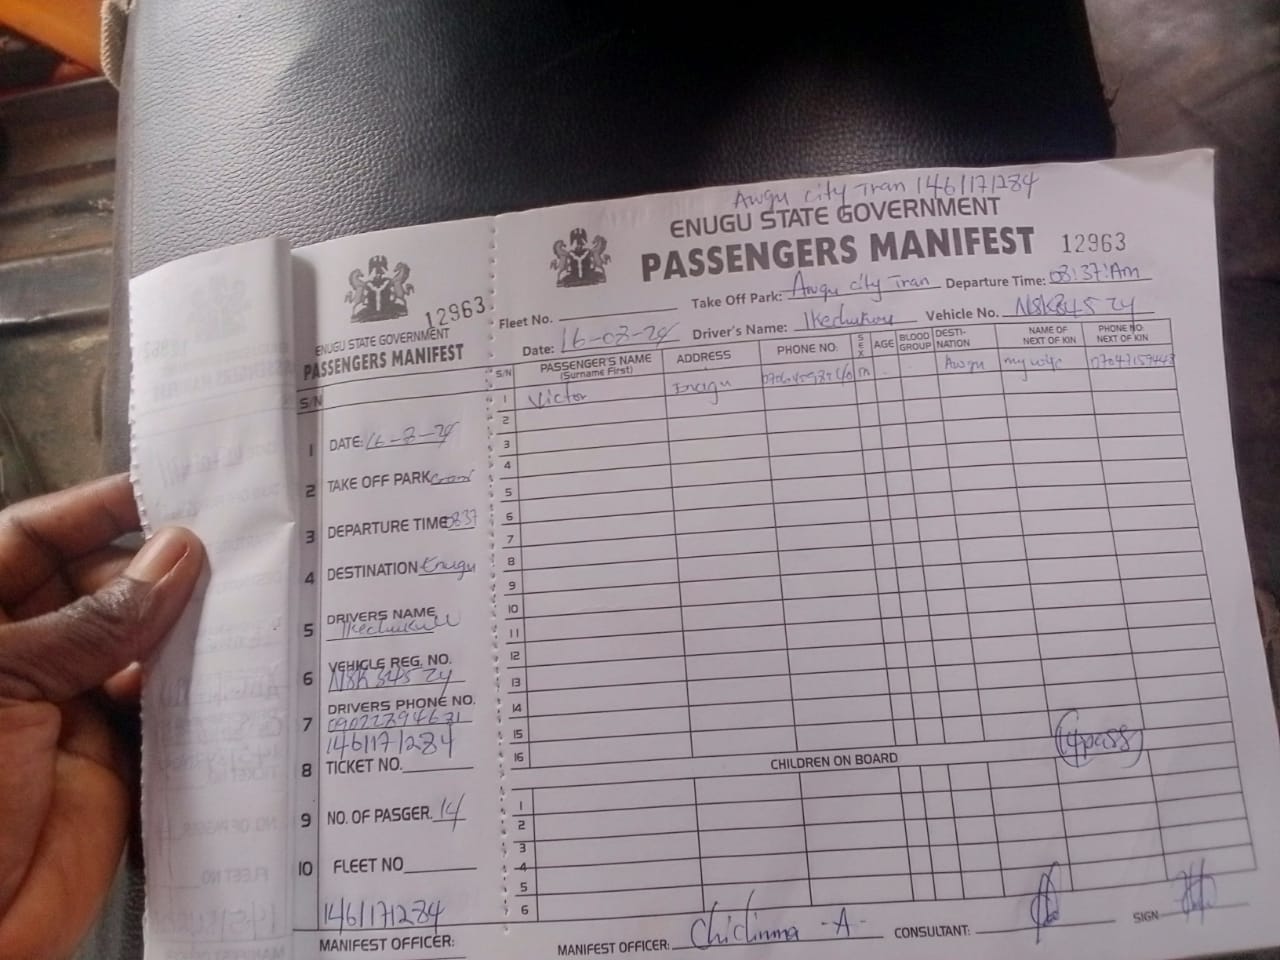 Awgu city Tran 146171284
ENUGU STATE GOVERNMENT
PASSENGERS MANIFEST 12963
Fleet No. Take Off Park: Awgu city Tran Departure Time: 08:37:Am
Date: 16-08-24 Driver's Name: Ikechukwu Vehicle No. NSK345 ZY
S/N PASSENGER'S NAME (Surname First) ADDRESS PHONE NO. SEX AGE BLOOD GROUP DESTI-NATION NAME OF NEXT OF KIN PHONE NO. NEXT OF KIN
1 Victor Enugu m Awgu my wife
2
3
4
5
6
7
8
9
10
11
12
13
14
15
16
14pass
CHILDREN ON BOARD
1
2
3
4
5
6
MANIFEST OFFICER: Chidinma -A- CONSULTANT: SIGN
12963
ENUGU STATE GOVERNMENT
PASSENGERS MANIFEST
S/N
1 DATE: 16-8-24
2 TAKE OFF PARK
3 DEPARTURE TIME 0837
4 DESTINATION Enugu
5 DRIVERS NAME
Ikechukwu
6 VEHICLE REG. NO.
NSK 345 ZY
7 DRIVERS PHONE NO.
146171284
8 TICKET NO.
9 NO. OF PASGER. 14
10 FLEET NO
146171284
MANIFEST OFFICER: